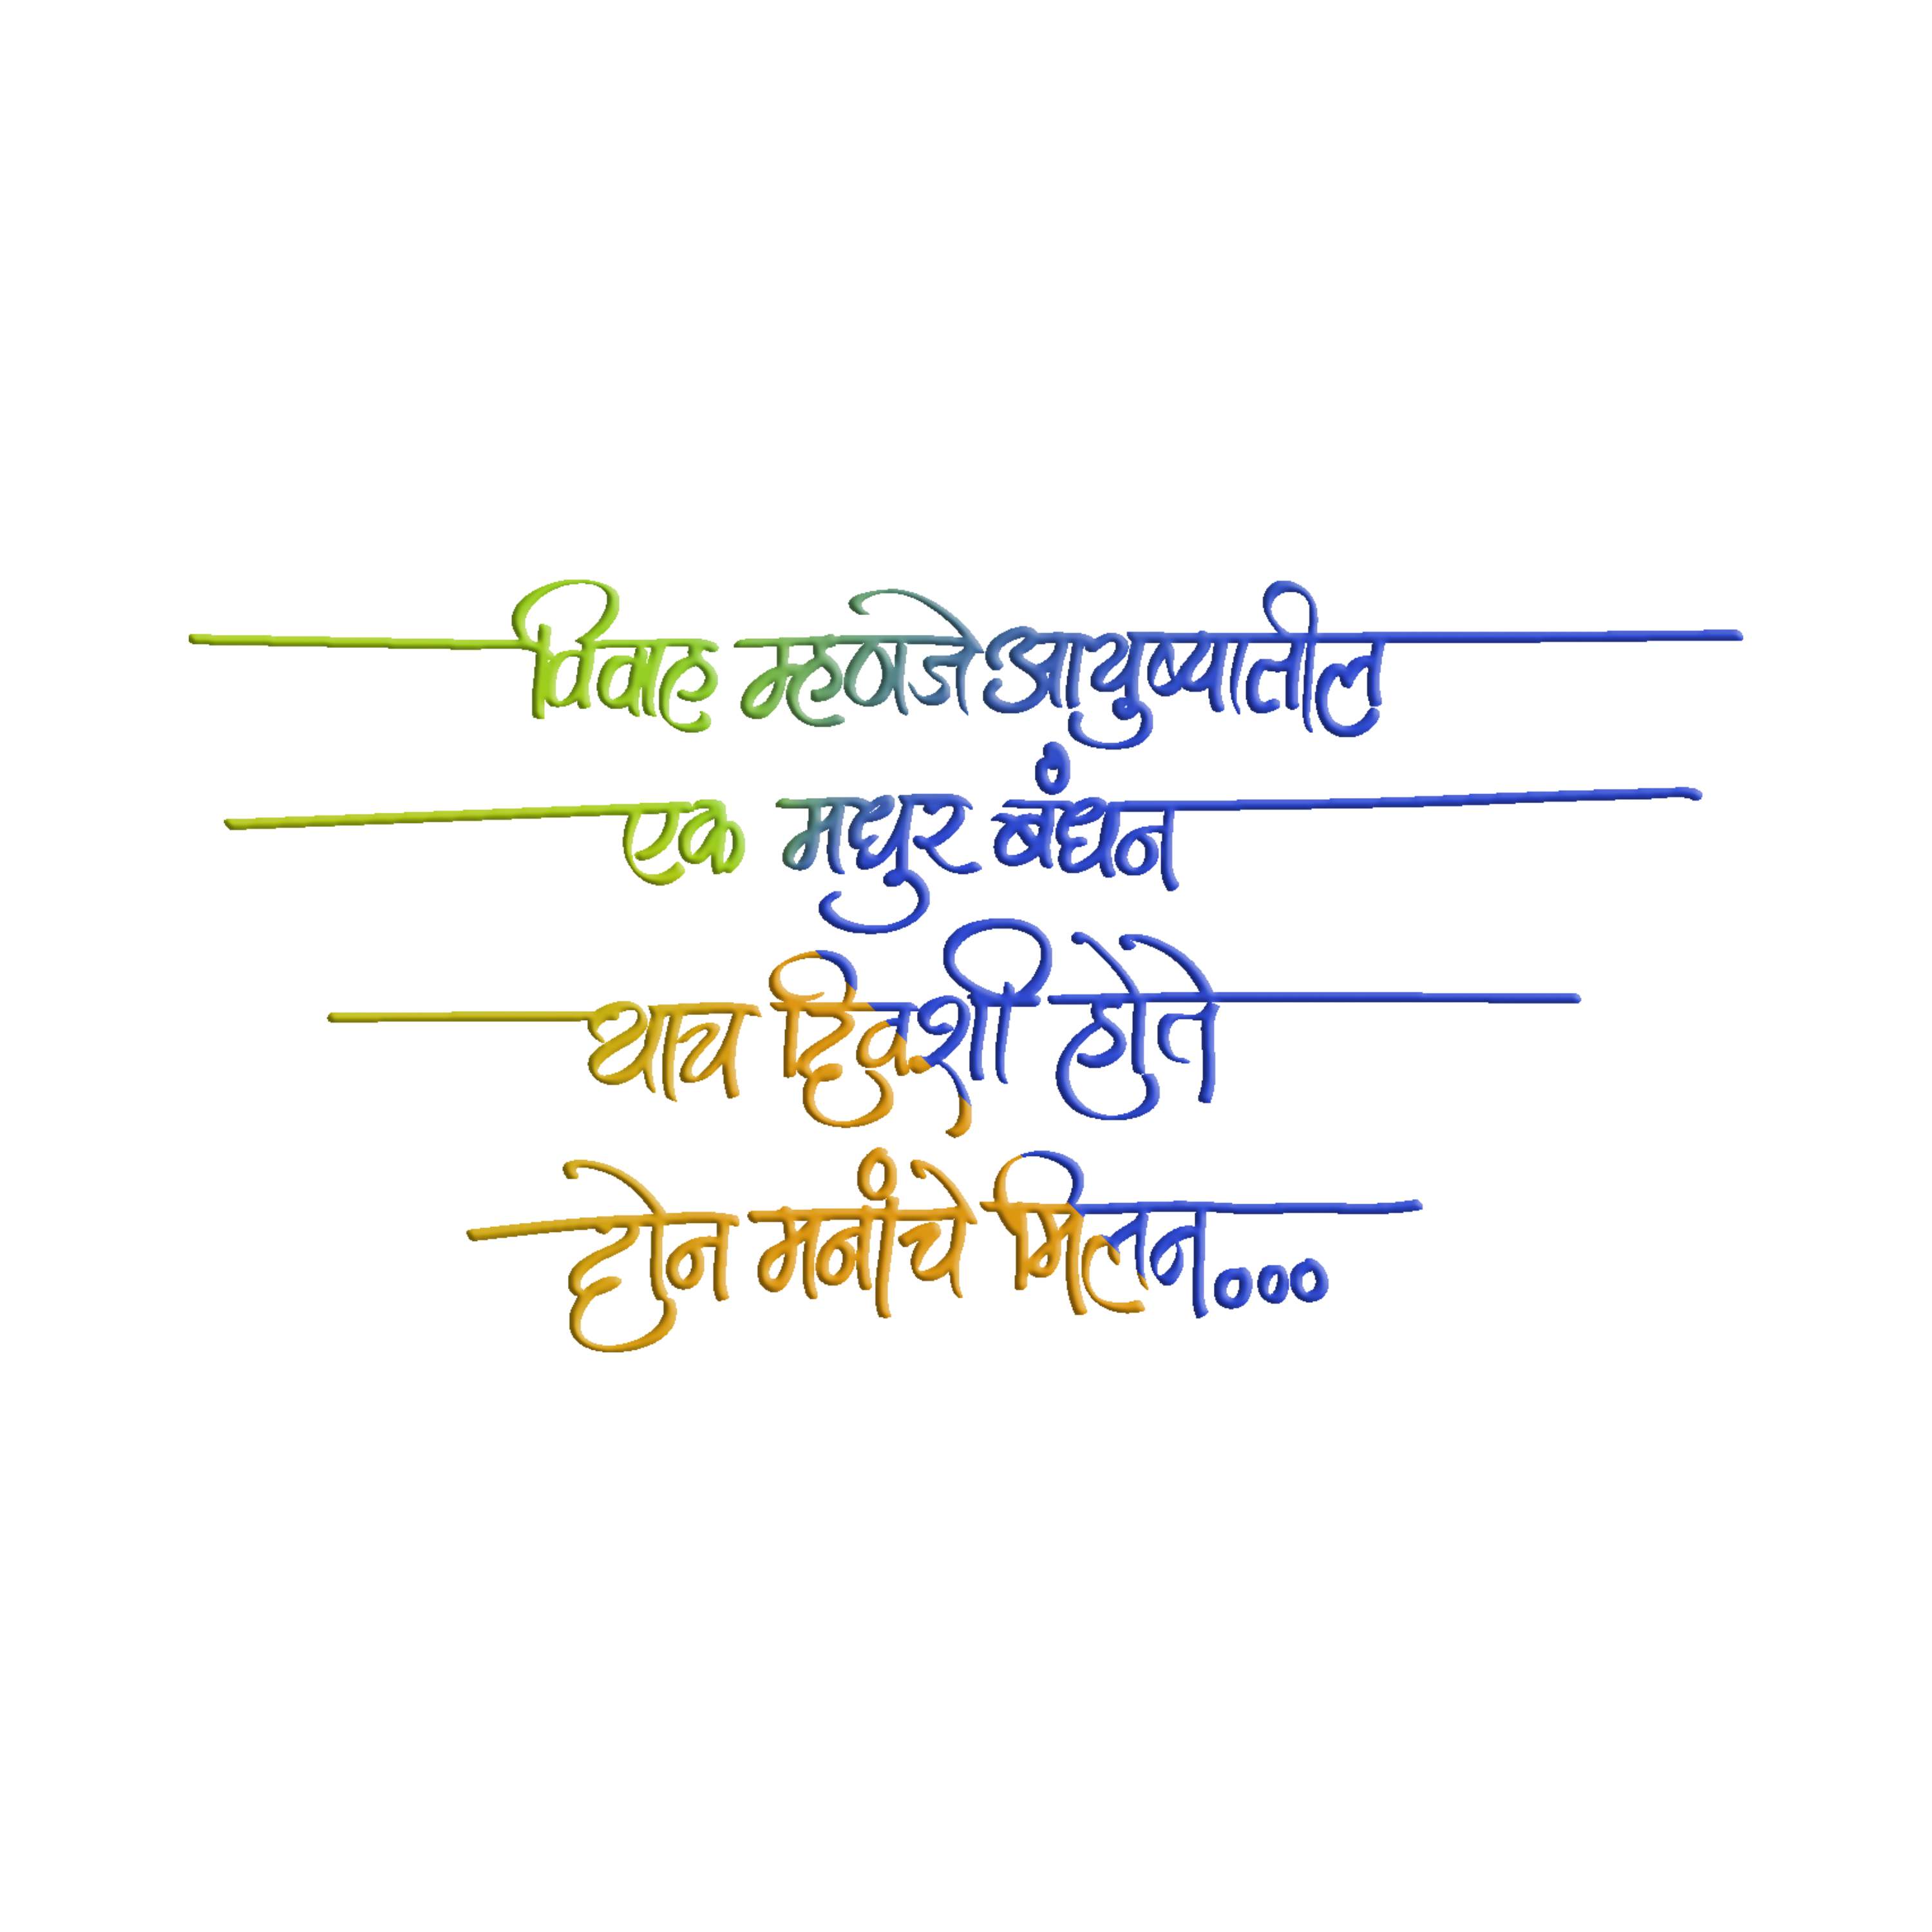 विवाह म्हणजे आयुष्यातील
एक मधुर बंधन
याच दिवशी होते
दोन मनांचे मिलन...